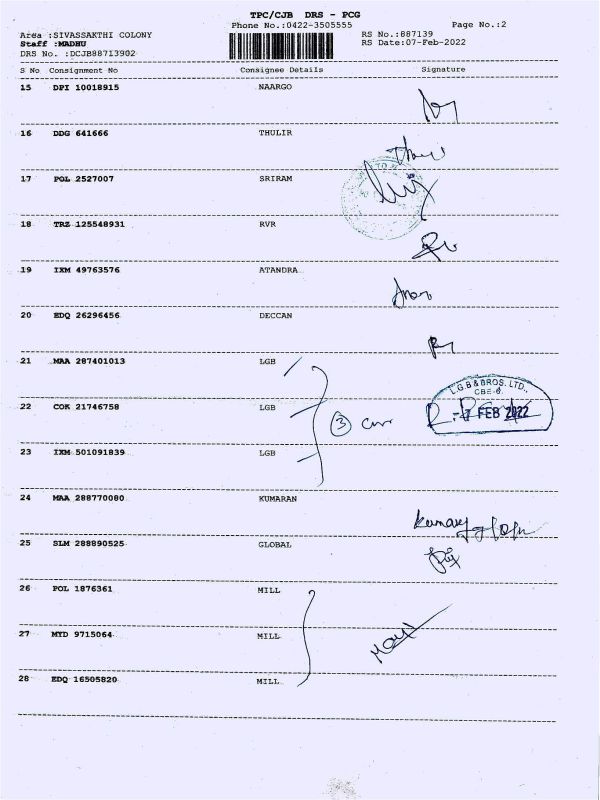 TPC/CJB DRS - PCG
Phone No.:0422-3505555
Page No.:2
Area :SIVASSAKTHI COLONY
RS No.:887139
Staff :MADHU
RS Date:07-Feb-2022
DRS No. :DCJB88713902
S No Consignment No Consignee Details Signature
15 DPI 10018915 NAARGO
16 DDG 641666 THULIR
17 POL 2527007 SRIRAM
18 TRZ 125548931 RVR
19 IXM 49763576 ATANDRA
20 EDQ 26296456 DECCAN
21 MAA 287401013 LGB
L.G.B & BROS. LTD.,
CBE-6.
22 COK 21746758 LGB
3
-7 FEB 2022
23 IXM 501091839 LGB
24 MAA 288770080 KUMARAN
25 SLM 288890525 GLOBAL
26 POL 1876361 MILL
27 MYD 9715064 MILL
28 EDQ 16505820 MILL